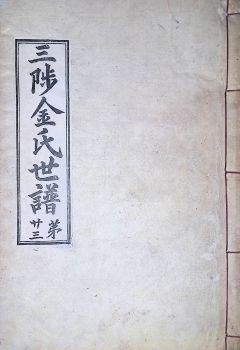 三陟金氏世譜
第
卄三